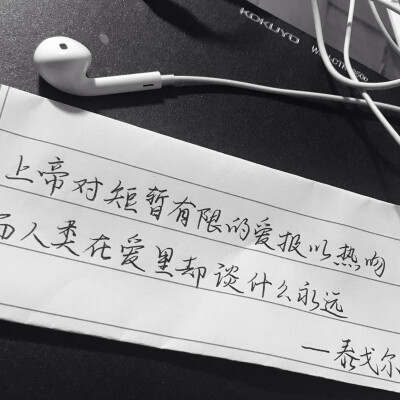 KOKUYO
上帝对短暂有限的爱报以热吻
而人类在爱里却谈什么永远
—泰戈尔